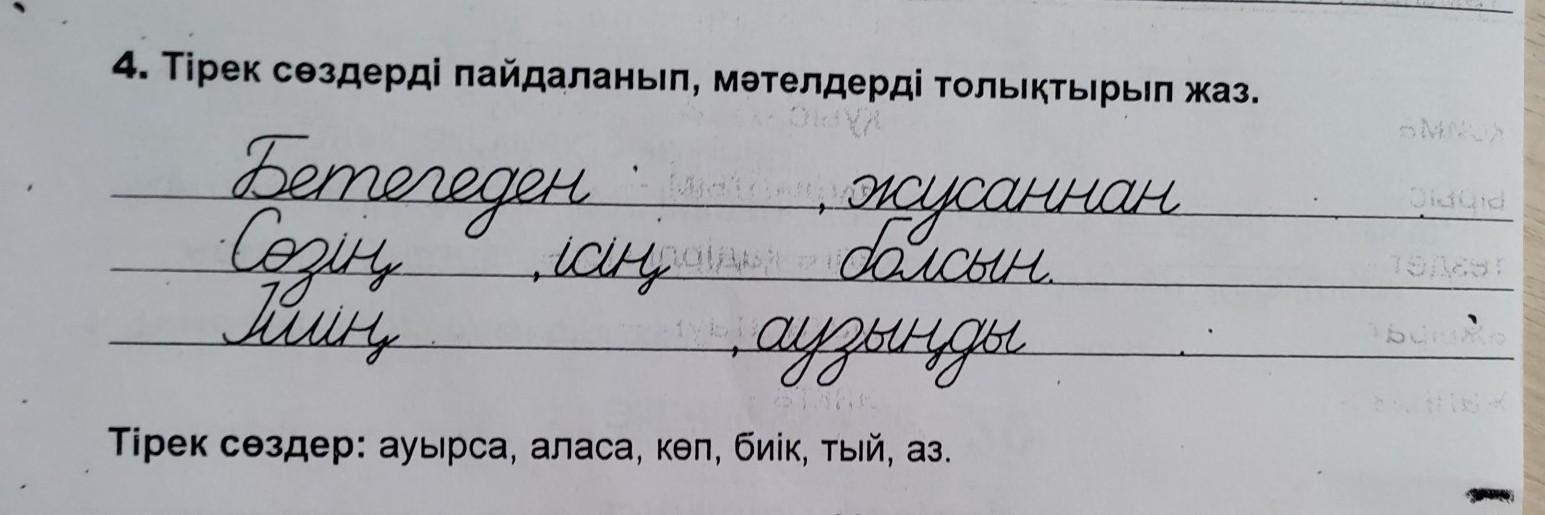 4. Тірек сөздерді пайдаланып, мәтелдерді толықтырып жаз.
Бетегеден , жусаннан
Сөзің , ісің болсын.
Ішің , аузыңды .
Тірек сөздер: ауырса, аласа, көп, биік, тый, аз.